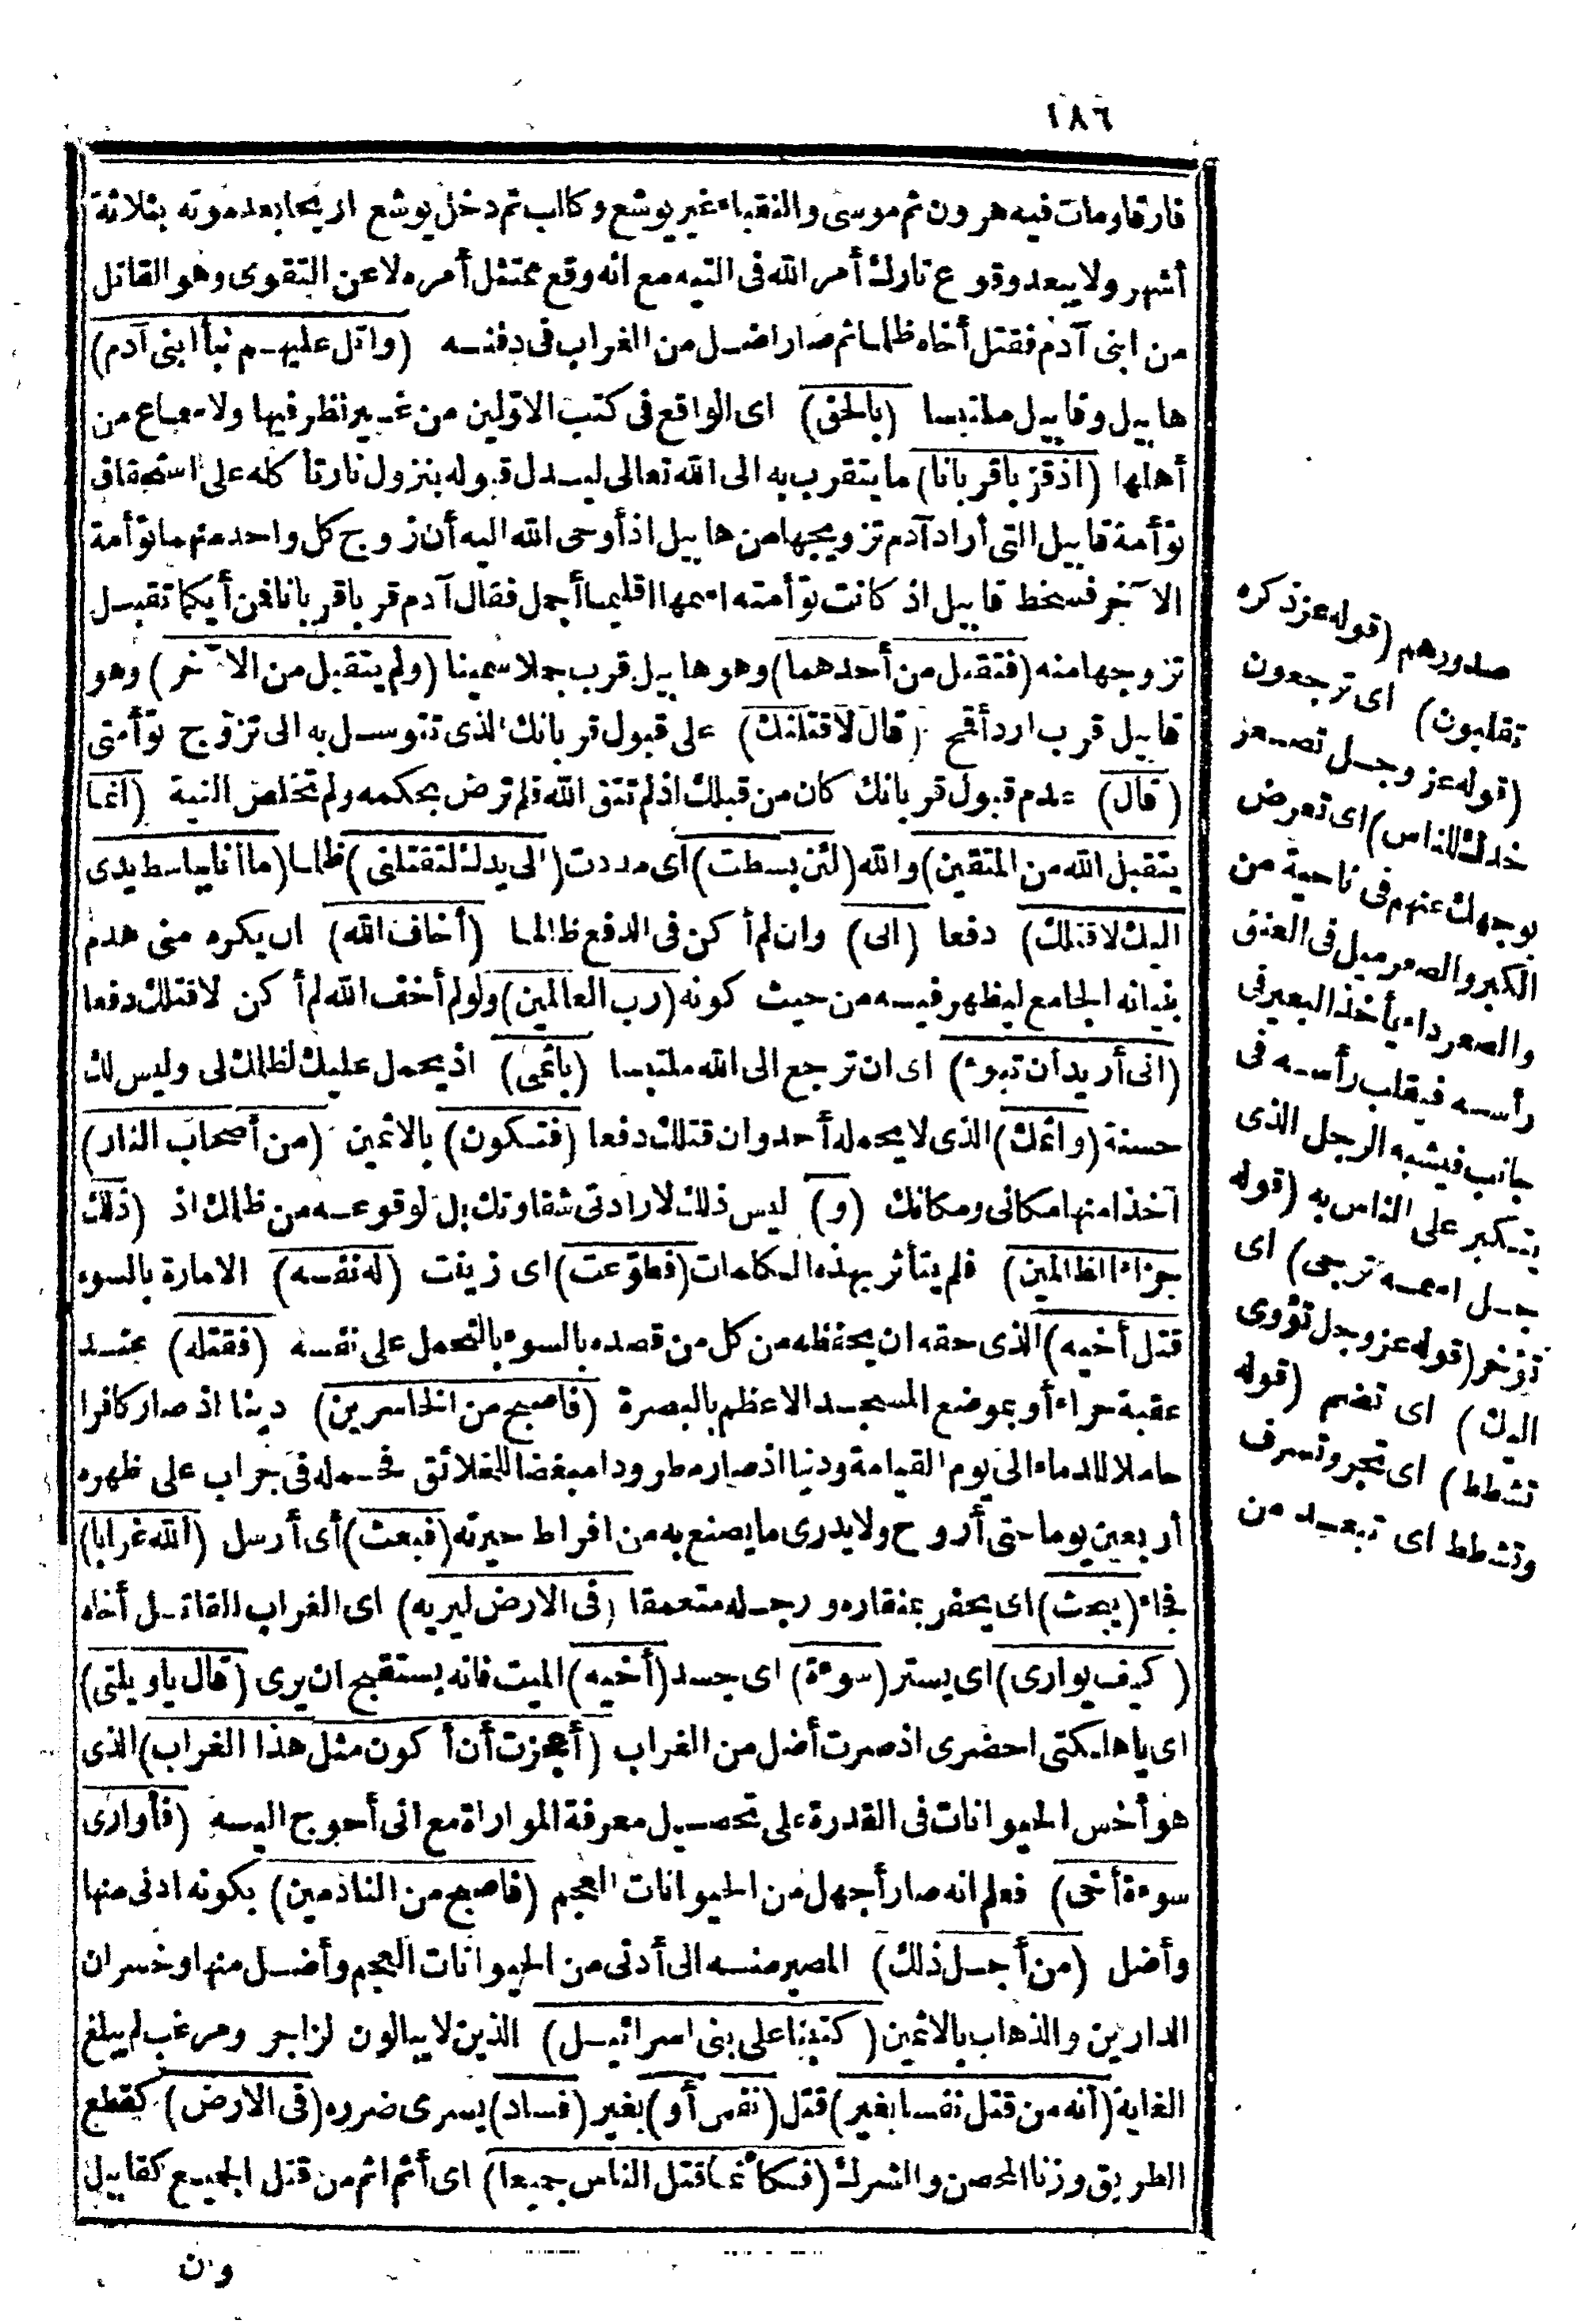 ١٨٦
فارقا ومات فيه هرون ثم موسى والنقباء غير يوشع وكالب ثم دخل يوشع اريحا بعد موته بثلاثة
أشهر ولا يبعد وقوع تارك أمر الله فى التيه مع انه وقع ممتثل أمره لا عن التقوى وهو القاتل
من ابنى آدم فقتل أخاه ظلما ثم صار اضل من الغراب فى دفنه (واتل عليهم نبأ ابنى آدم)
هابيل وقابيل ملتبسا (بالحق) اى الواقع فى كتب الاوّلين من غير نظر فيها ولا سماع من
أهلها (اذ قرّبا قربانا) ما يتقرب به الى الله تعالى ليدل قبوله بنزول نار تأكله على استحقاق
توأمة قابيل التى أراد آدم تزويجها من هابيل اذ أوحى الله اليه أن زوج كل واحد منهما توأمة
الآخر فسخط قابيل اذ كانت توأمته اسمها اقليما أجمل فقال آدم قربا قربانا فمن أيكما تقبل
تزوجها منه (فتقبل من أحدهما) وهو هابيل قرب جملا سمينا (ولم يتقبل من الآخر) وهو
قابيل قرب اردأ قمح (قال لاقتلنك) على قبول قربانك الذى تتوسل به الى تزوّج توأمتى
(قال) عدم قبول قربانك كان من قبلك اذ لم تتق الله فلم ترض بحكمه ولم تخلص النية (انما
يتقبل الله من المتقين) والله (لئن بسطت) أى مددت (الى يدك لتقتلنى) ظلما (ما انا بباسط يدى
اليك لاقتلك) دفعا (انى) وان لم أكن فى الدفع ظالما (أخاف الله) ان يكره منى هدم
بنيانه الجامع ليظهر فيه من حيث كونه (رب العالمين) ولو لم أخف الله لم أكن لاقتلك دفعا
(انى أريد ان تبوء) اى ان ترجع الى الله ملتبسا (باثمى) اذ يحمل عليك لظلمك لى وليس لك
حسنة (واثمك) الذى لا يحمله أحد وان قتلك دفعا (فتكون) بالاثمين (من أصحاب النار)
آخذا منها مكانى ومكانك (و) ليس ذلك لارادتى شقاوتك بل لوقوعه من ظلمك اذ (ذلك
جزاء الظالمين) فلم يتأثر بهذه الكلمات (فطوّعت) اى زينت (له نفسه) الامارة بالسوء
قتل أخيه) الذى حقه ان يحفظه من كل من قصده بالسوء بالتحمل على نفسه (فقتله) عند
عقبة حراء أو بموضع المسجد الاعظم بالبصرة (فاصبح من الخاسرين) دينا اذ صار كافرا
حاملا للدماء الى يوم القيامة ودنيا اذ صار مطرودا مبغضا للخلائق فحمله فى جراب على ظهره
أربعين يوما حتى أروح ولا يدرى ما يصنع به من افراط حيرته (فبعث) أى أرسل (الله غرابا)
فجاء (يبحث) اى يحفر بمنقاره ورجله متعمقا (فى الارض ليريه) اى الغراب القاتل أخاه
(كيف يوارى) اى يستر (سوءة) اى جسد (أخيه) الميت فانه يستقبح ان يرى (قال يا ويلتى)
اى يا هلكتى احضرى اذ صرت أضل من الغراب (أعجزت أن أكون مثل هذا الغراب) الذى
هو أخس الحيوانات فى القدرة على تحصيل معرفة المواراة مع انى أحوج اليه (فأوارى
سوءة أخى) فعلم انه صار أجهل من الحيوانات العجم (فاصبح من النادمين) بكونه ادنى منها
وأضل (من أجل ذلك) المصير منه الى أدنى من الحيوانات العجم وأضل منها وخسران
الدارين والذهاب بالاثمين (كتبنا على بنى اسرائيل) الذين لا يبالون لزاجر ومرغب لم يبلغ
الغاية (أنه من قتل نفسا بغير) قتل (نفس أو) بغير (فساد) يسرى ضرره (فى الارض) كقطع
الطريق وزنا المحصن والشرك (فكأنما قتل الناس جميعا) اى أثم اثم من قتل الجميع كقابيل
ون
صدورهم (قوله عز ذكره
تقلبون) اى ترجعون
(قوله عز وجل تصعر
خدك للناس) اى تعرض
بوجهك عنهم فى ناحية من
الكبر والصعر ميل فى العنق
والصعر داء يأخذ البعير فى
رأسه فيقلب رأسه فى
جانب فيشبه الرجل الذى
يتكبر على الناس به (قوله
جل اسمه ترجى) اى
تؤخر (قوله عز وجل تؤوى
اليك) اى تضم (قوله
تشطط) اى تجر وتسرف
وتشطط اى تبعد من